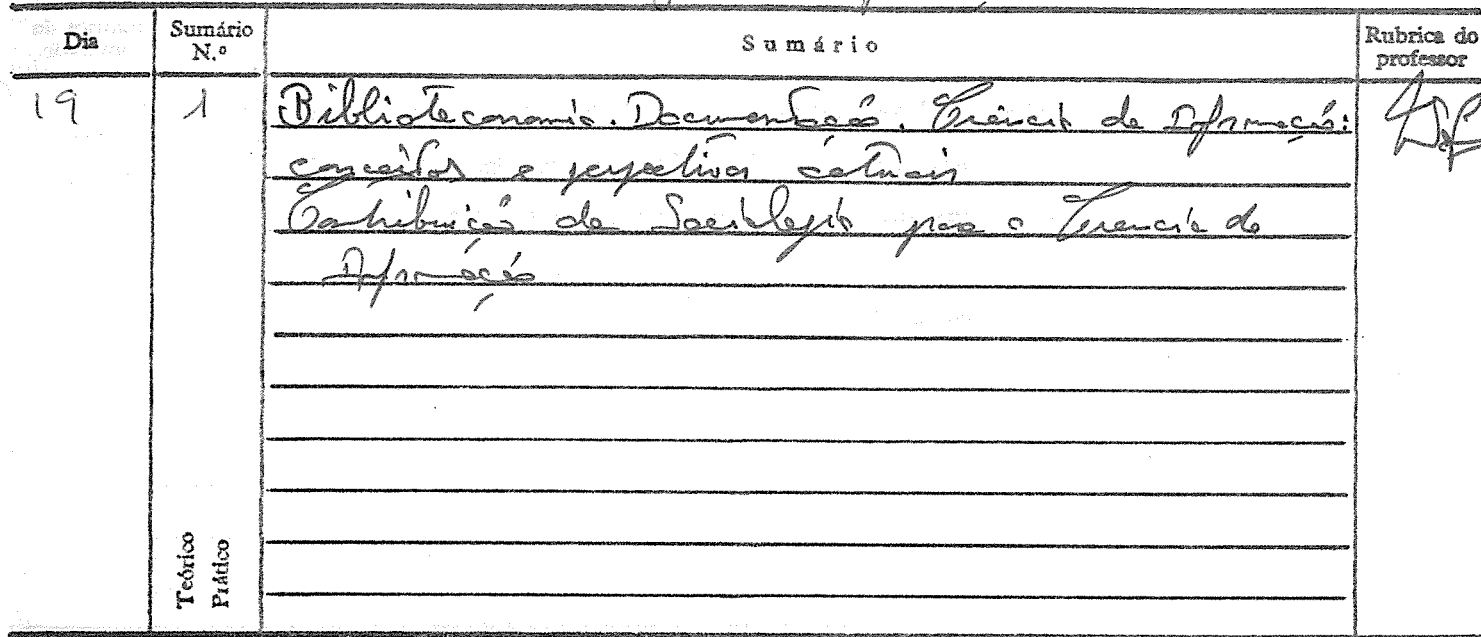 Dia
Sumário
N.º
Sumário
Rubrica do
professor
19
1
Biblioteconomia. Documentação. Ciência da Informação:
conceitos e perspetivas actuais
Contribuição da Sociologia para a Ciência da
Informação
Teórico
Prático